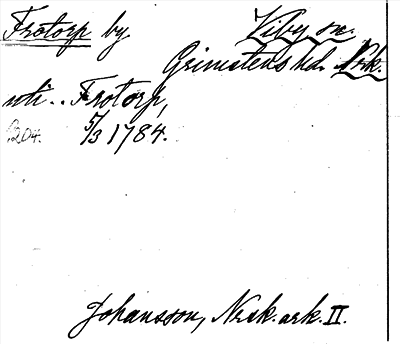 Frotorp by Viby sn.
Grimstens hd. Nrk.
uti.. Frotorp,
204. 5/3 1784.
Johansson, Nrsk. ark. II.